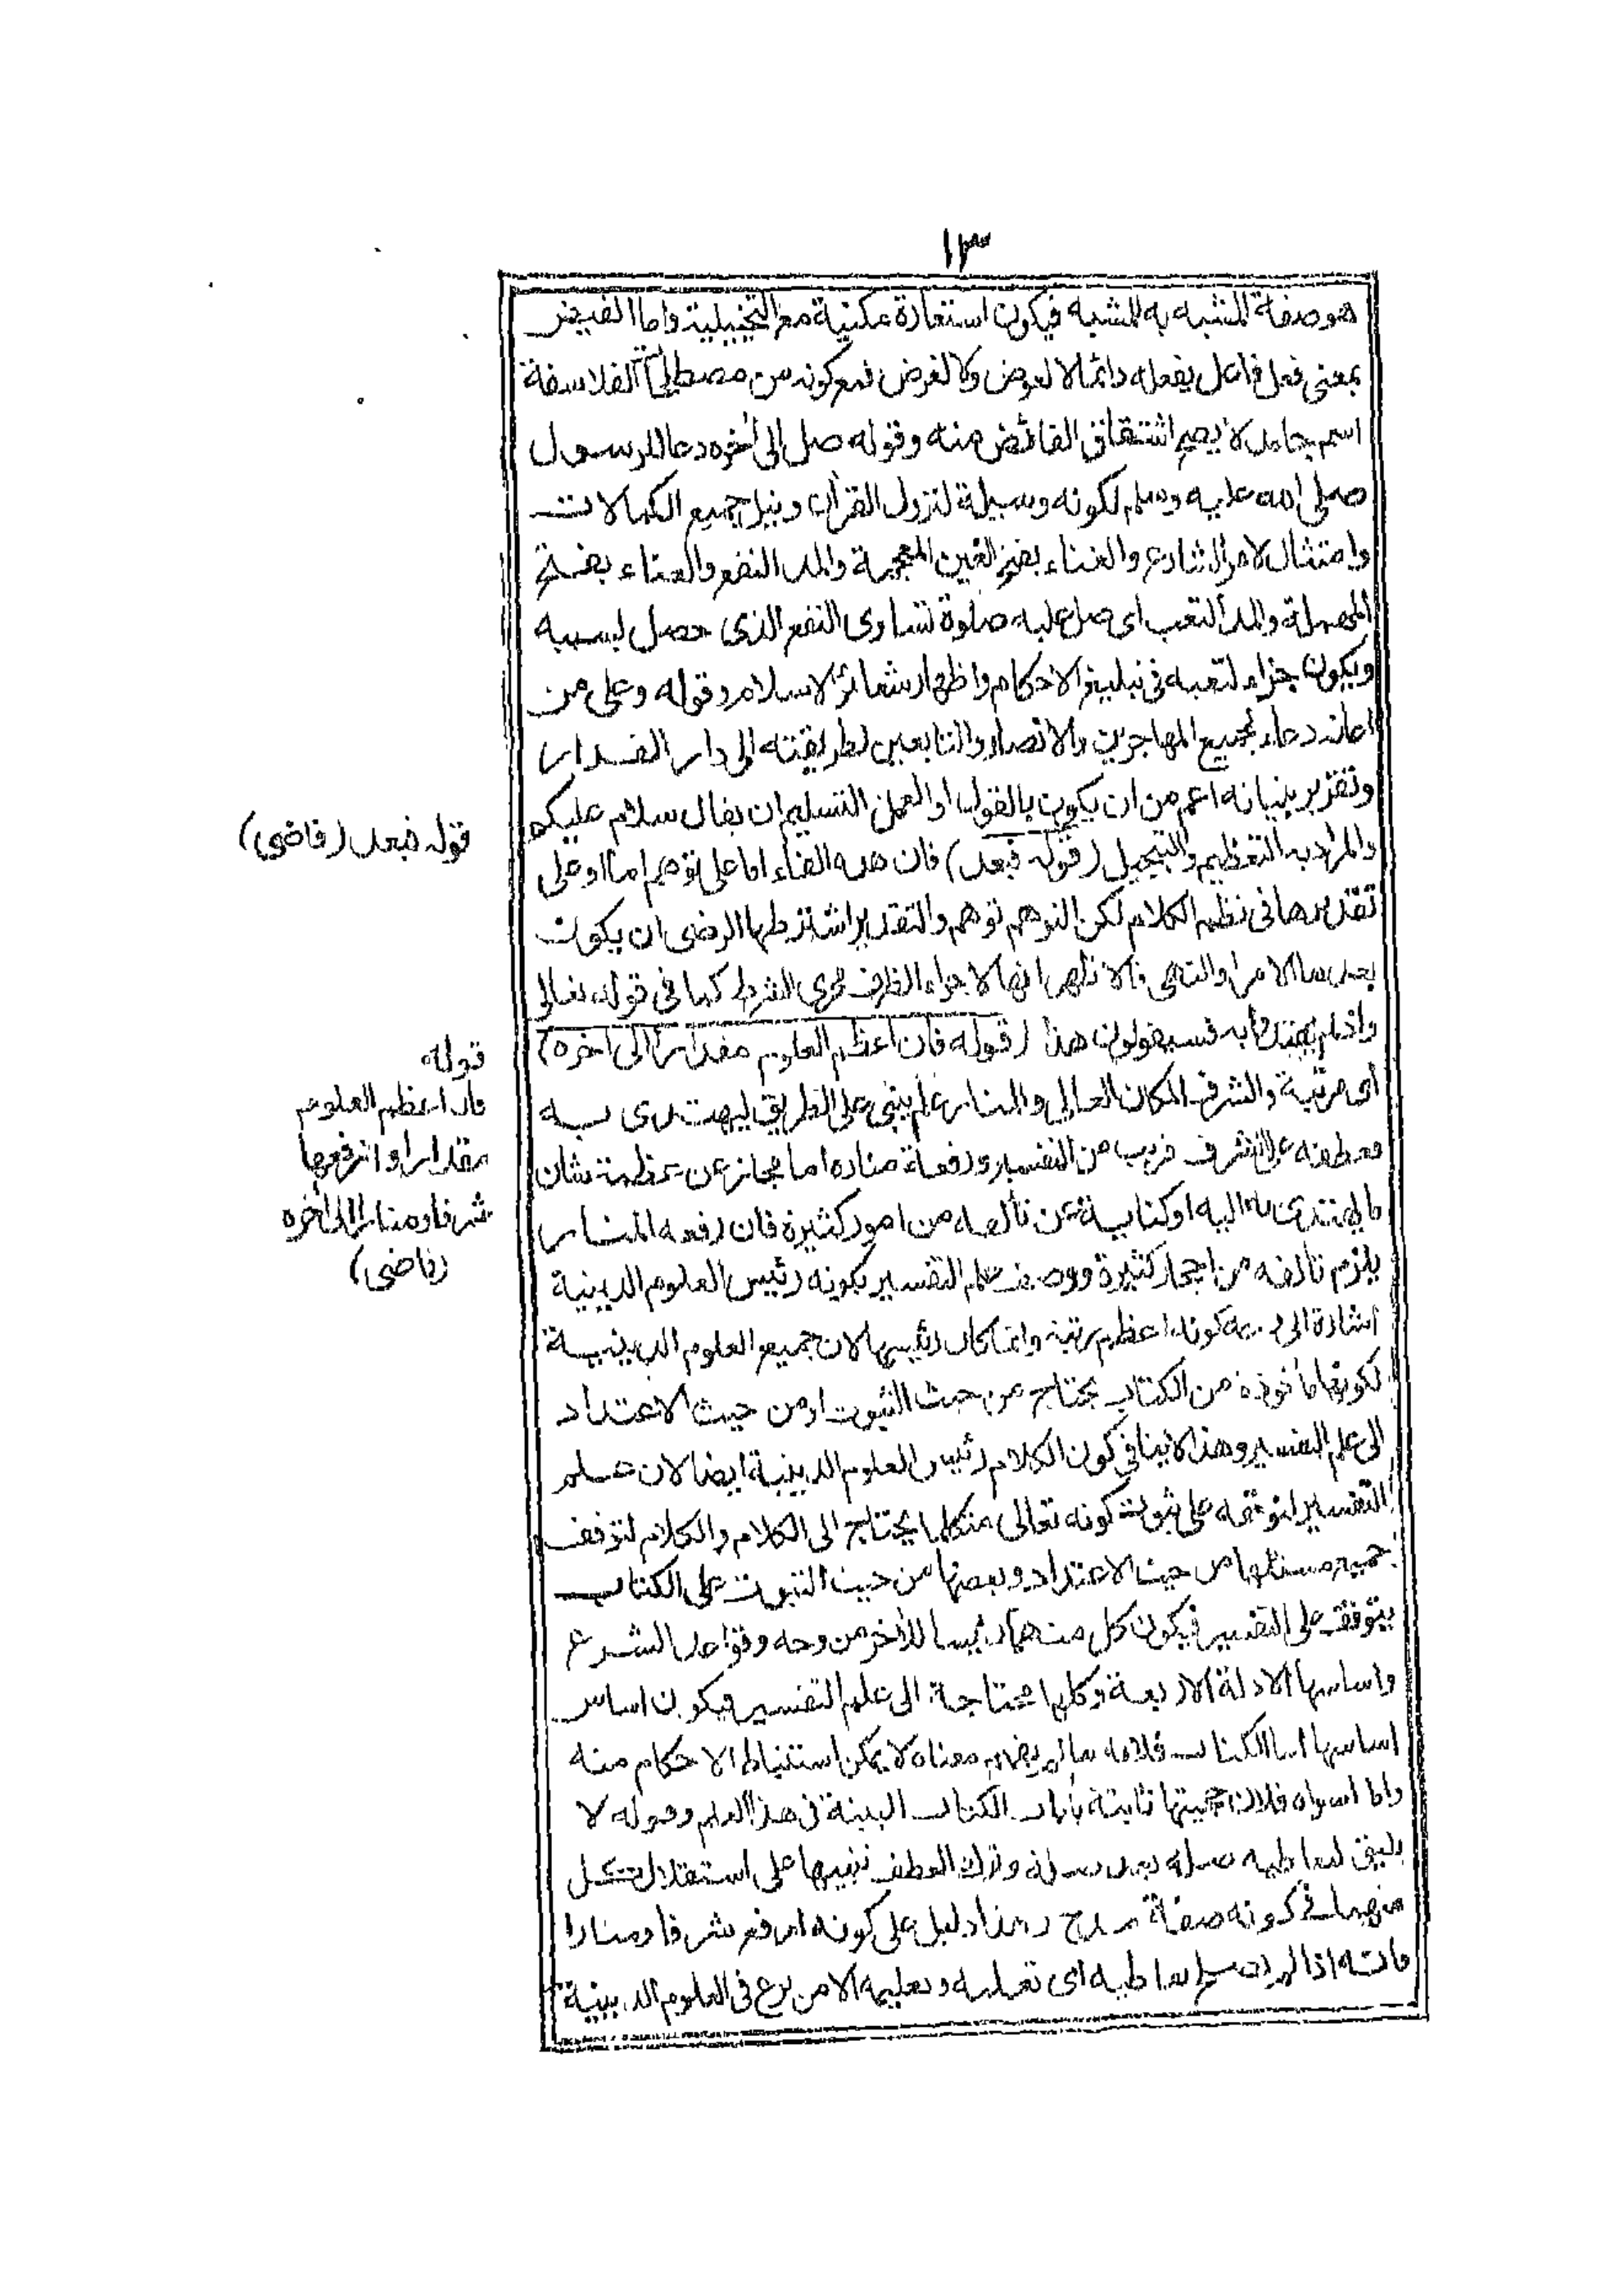 ١٣
هو صفة المشبه به للمشبه فيكون استعارة مكنية مع التخييلية واما الفيض
بمعنى فعل فاعل يفعله دائما لا لعوض ولا لغرض فمع كونه من مصطلح الفلاسفة
اسم جامد لا يصح اشتقاق الفائض منه وقوله صل الى اخره دعا للرسول
صلى الله عليه وسلم لكونه وسيلة لنزول القرآن ونيل جميع الكمالات
وامتثال لامر الشارع والغناء بفتح الغين المعجمة والمد النفع والعناء بفتح
المهملة والمد التعب اى صل عليه صلوة تساوى النفع الذى حصل بسببه
ويكون جزاء لتعبه فى تبليغ الاحكام واظهار شعائر الاسلام وقوله وعلى من
اعانه دعاء لجميع المهاجرين والانصار والتابعين لطريقته الى دار القرار
وتقرير بنيانه اعم من ان يكون بالقول او العمل التسليم ان يقال سلام عليكم
والمراد به التعظيم والتبجيل (قوله فبعد) فان هذه الفاء اما على توهم اما او على
تقديرها فى نظم الكلام لكن التوهم توهم والتقدير اشترطها الرضى ان يكون
بعدها الامر او النهى فالاظهر انها لاجراء الظرف مجرى الشرط كما فى قوله تعالى
واذ لم يهتدوا به فسيقولون هذا (قوله فان اعظم العلوم مقدارا الى اخره)
اى مرتبة والشرف المكان العالى والمنار علم يبنى على الطريق ليهتدى به
وعطفه على الشرف قريب من التفسير ورفعة مناره اما مجاز عن عظمة شان
ما يهتدى به اليه او كناية عن تألفه من امور كثيرة فان رفعه المنار
يلزم تالفه من احجار كثيرة ووصف علم التفسير بكونه رئيس العلوم الدينية
اشارة الى كونه اعظم رتبة وانما كان رئيسها لان جميع العلوم الدينية
لكونها مأخوذة من الكتاب يحتاج من حيث الثبوت او من حيث الاعتداد
الى علم التفسير وهذا لا ينافى كون الكلام رئيس العلوم الدينية ايضا لان علم
التفسير لتوقفه على ثبوت كونه تعالى متكلما يحتاج الى الكلام والكلام لتوقف
جميع مسائلها من حيث الاعتداد وبعضها من حيث الثبوت على الكتاب
يتوقف على التفسير فيكون كل منهما رئيسا للآخر من وجه وقواعد الشرع
واساسها الادلة الاربعة وكلها محتاجة الى علم التفسير فيكون اساس
اساسها اما الكتاب فلانه ما لم يفهم معناه لا يمكن استنباط الاحكام منه
واما سواه فلان حجيتها ثابتة بآيات الكتاب المبينة فى هذا العلم وقوله لا
يليق لتعاطيه صلة بعد صلة وترك العطف تنبيها على استقلال كل
منهما فى كونه صفة مدح وهذا دليل على كونه ارفع شرفا ومنارا
فانه اذا لم يصلح لتعاطيه اى تعلمه وتعليمه الا من برع فى العلوم الدينية
قوله فبعد (قاضى)
قوله
فان اعظم العلوم
مقدارا وارفعها
شرفا ومنارا الى اخره
(قاضى)